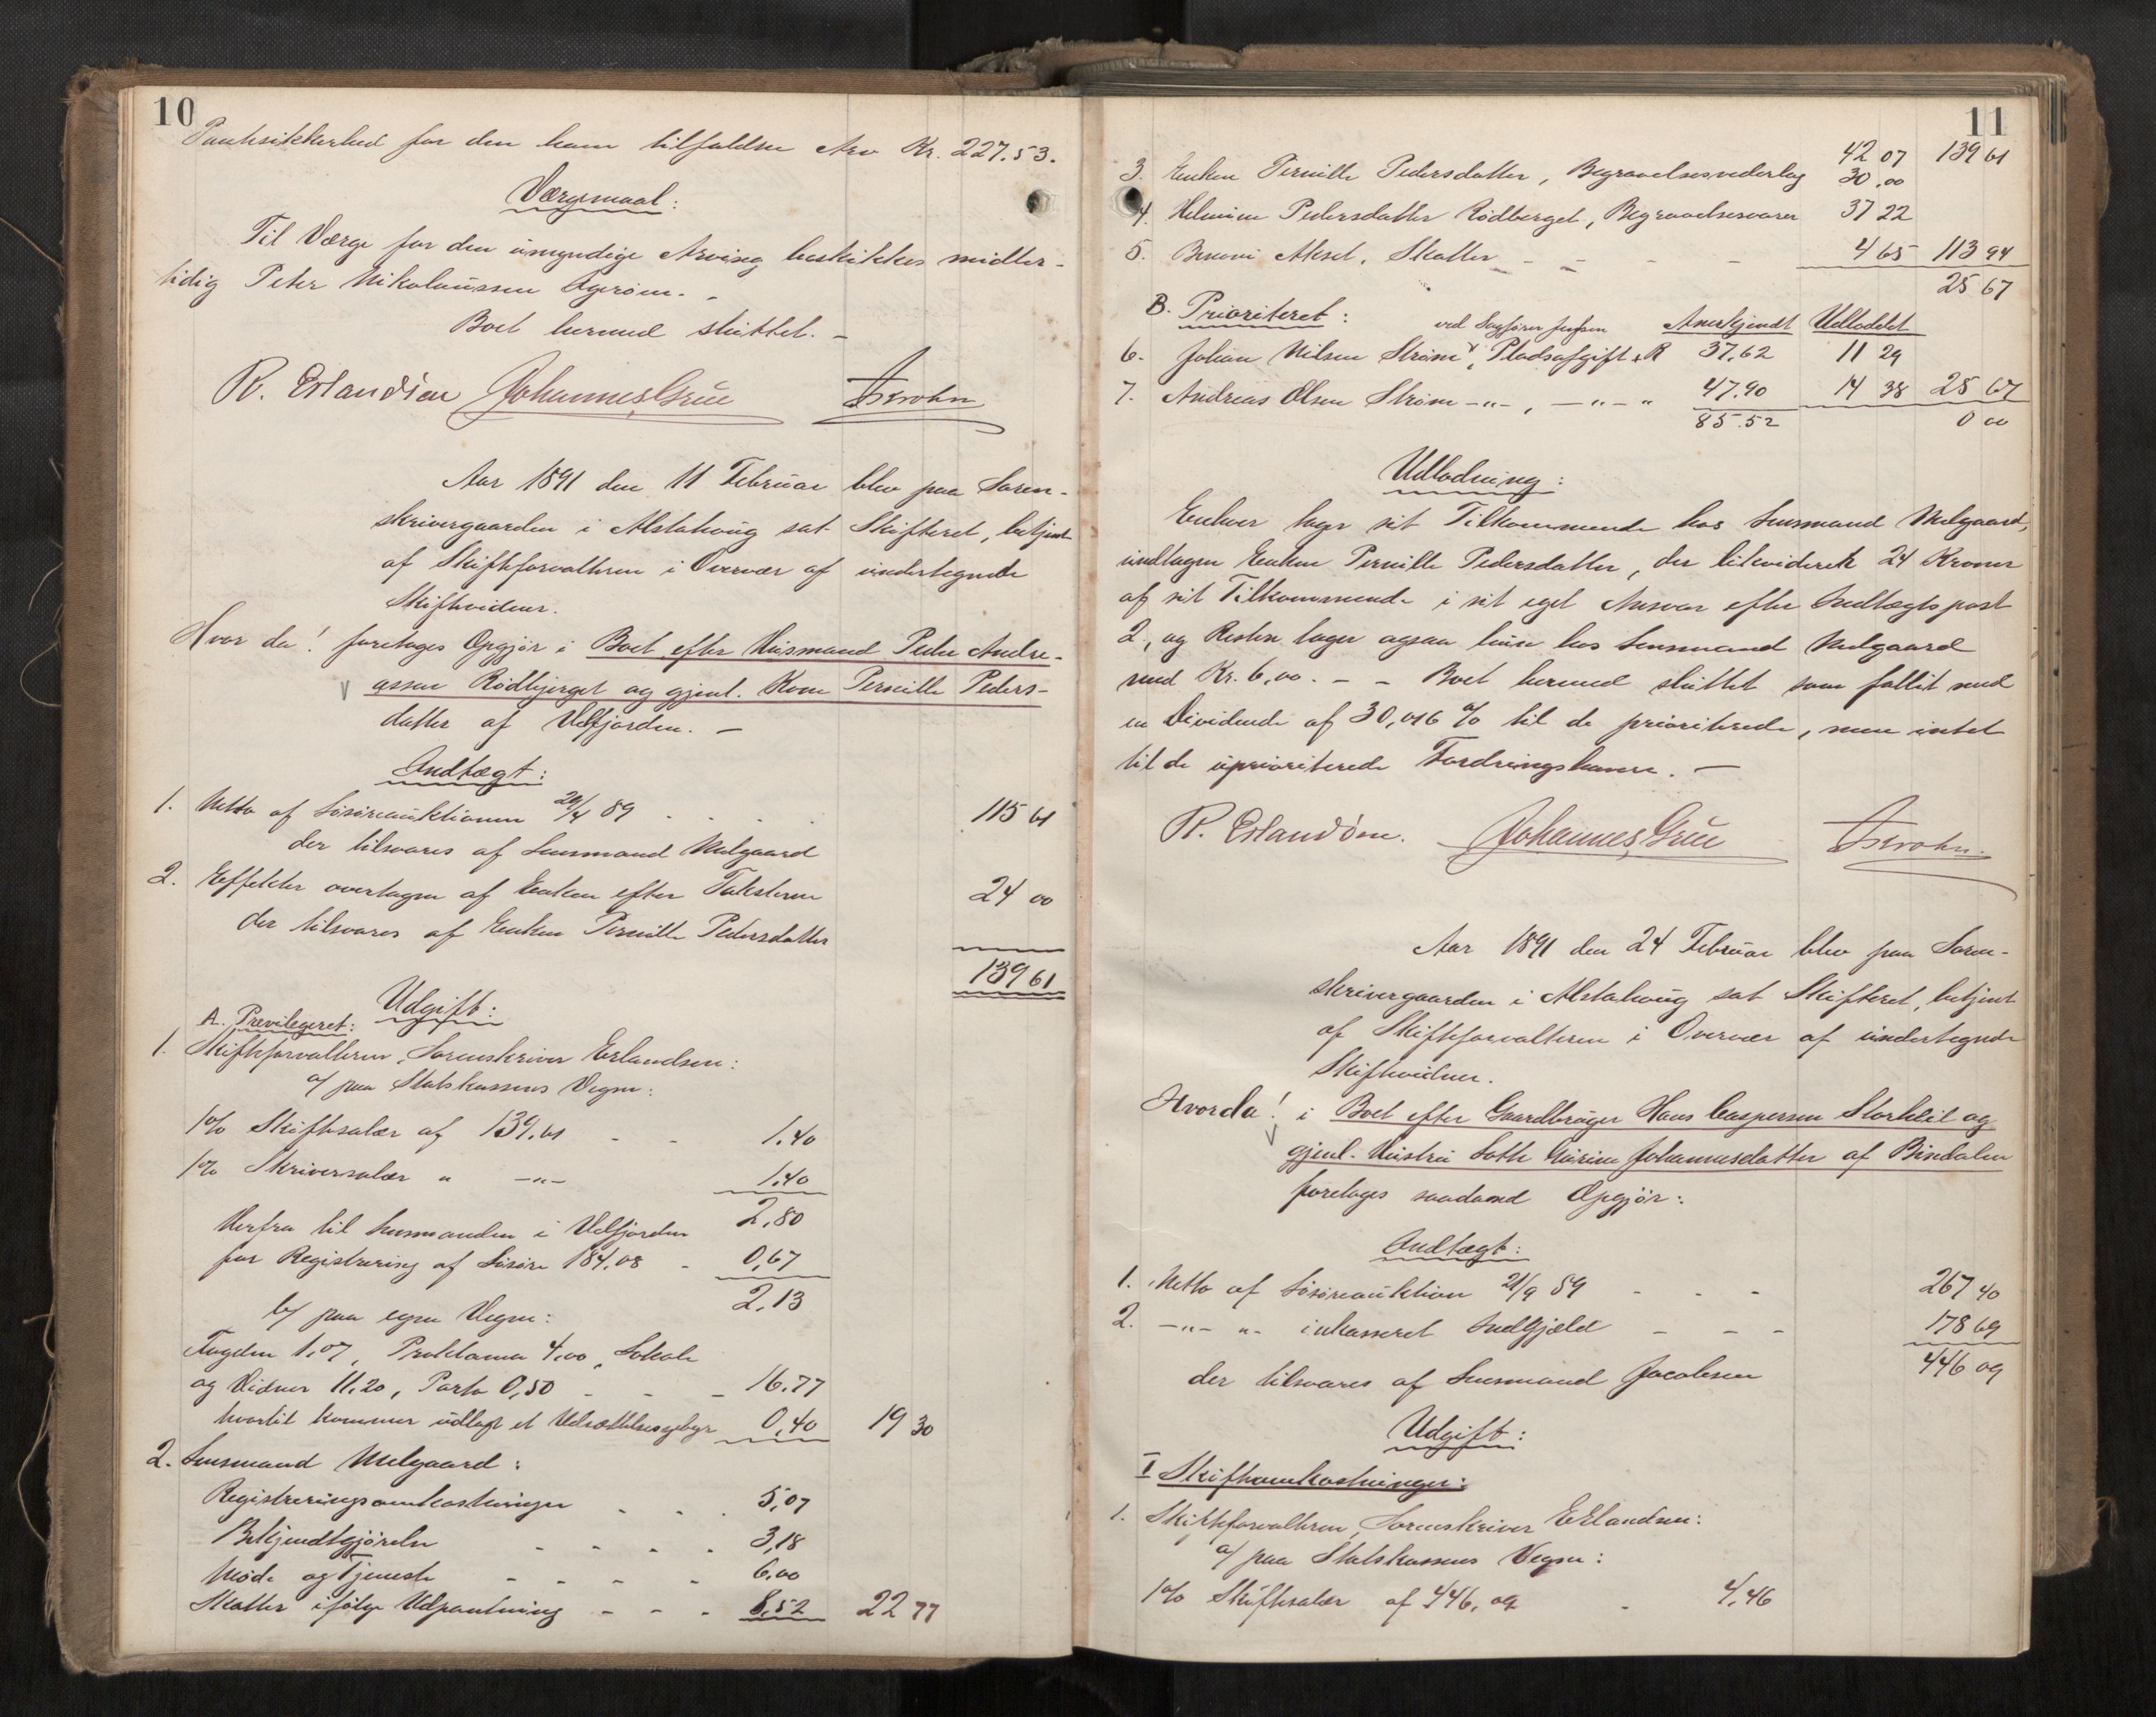 10
Pantesikkerhed for den ham tilfaldne Arv Kr. 227.53.
Værgemaal:
Til Værge for den umyndige Arving beskikkes midler-
tidig Peter Nikolaussen
Boet hermed sluttet. –
R. Erlandsen Johannes Grue
Aar 1891 den 11 Februar blev paa Soren-
skrivergaarden i Alstahoug sat Skifteret, betjent
af Skifteforvalteren i Overvær af undertegnede
Skiftevidner.
Hvor da! foretoges Opgjör i Boet efter Husmand Peder Andre-
assen Rödbjerget og gjenl. Kone Pernille Peders-
datter af Velfjorden. –
Indtægt:
1. Netto af Lösöreauktionen 29/4 89 115 61
der tilsvares af Lensmand Melgaard
2. Effekter overtagen af Enken efter Taksten 24 00
der tilsvares af Enken Pernille Pedersdatter
139 61
Udgift:
A. Previlegeret:
1. Skifteforvalteren, Sorenskriver Erlandsen:
a/ paa Statskassens Vegne:
1% Skiftesalær af 139.61 - - 1.40
1% Skriversalær " -"- 1.40
2,80
Herfra til Lensmanden i Velfjorden
for Registrering af Lösöre 184.08 - 0,67
2,13
b/ paa egne Vegne:
Fogden 1.07, Proklama 4,00, Lokale
og Vidner 11.20, Porto 0,50 - - - 16.77
hvortil kommer udlagt et Udsættelsesgebyr 0.40 19 30
2. Lensmand Melgaard:
Registreringsomkostninger - - . 5,07
Bekjendtgjörelse - - - . 3,18
Möde og Tjeneste - - - - 6.00
Skatter ifölge Udpantning - - - 8,52 22 77
11
42 07 139 61
3. Enken Pernille Pedersdatter, Begravelsesvederlag 30.00
4. Helmine Pedersdatter Rödberget, Begravelsesvarer 37 22
5. Benoni Aksel, Skatter - - - - 4 65 113 94
25 67
B. Prioriteret: ved Sagförer Jenssen Anerkjendt Udloddet
6. Johan Nilsen Ström, Pladsafgift, R 37.62 11 29
7. Andreas Olsen Ström -"-, -"- " 47.90 14 38 25 67
85.52 0 00
Udlodning:
Enhver tager sit Tilkommende hos Lensmand Melgaard,
undtagen Enken Pernille Pedersdatter, der likviderer 24 Kroner
af sit Tilkommende i sit eget Ansvar efter Indtægts post
2, og Resten tager ogsaa hun hos Lensmand Melgaard
med Kr. 6,00. - - Boet hermed sluttet som fallit med
en Dividende af 30,016 % til de prioriterede, men intet
til de uprioriterede Fordringshavere. –
R. Erlandsen. Johannes Grue
Aar 1891 den 24 Februar blev paa Soren-
skrivergaarden i Alstahoug sat Skifteret, betjent
af Skifteforvalteren i Overvær af undertegnede
Skiftevidner.
Hvorda! i Boet efter Gaardbruger Hans Caspersen Storklil og
gjenl. Hustru Johannesdatter af Bindalen
foretoges saadand Opgjör:
Indtægt:
1. Netto af Lösöreauktion 21/9 89 - - - 267 40
2. -"- "- inkasseret Indgjæld - - - 178 69
der tilsvares af Lensmand Jacobsen 446 09
Udgift:
I Skifteomkostninger:
1. Skifteforvalteren, Sorenskriver Erlandsen:
a/ paa Statskassens Vegne:
1% Skiftesalær af 446.09 - 4,46